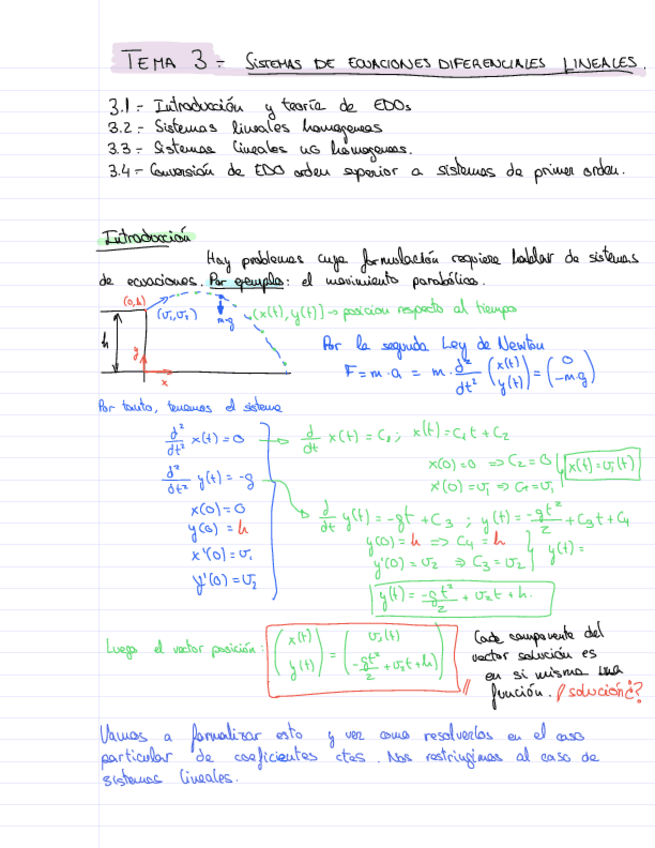 TEMA 3 - SISTEMAS DE ECUACIONES DIFERENCIALES LINEALES.
3.1.- Introducción y teoría de EDOs
3.2.- Sistemas lineales homogeneos
3.3.- Sistemas lineales no homogeneos.
3.4.- Conversión de EDO orden superior a sistemas de primer orden.
Introducción
Hay problemas cuya formulación requiere hablar de sistemas
de ecuaciones. Por ejemplo: el movimiento parabólico.
(0,h)
(v₁,v₂)
m·g
(x(t), y(t)] → posicion respecto al tiempo
h
y
x
Por la segunda Ley de Newton
F = m·a = m·d²/dt² (x(t) y(t)) = (0 -m·g)
Por tanto, tenemos el sistema
d²/dt² x(t) = 0 → d/dt x(t) = C₁; x(t) = C₁t + C₂
x(0) = 0 ⇒ C₂ = 0
x'(0) = v₁ ⇒ C₁ = v₁
x(t) = v₁(t)
d²/dt² y(t) = -g
x(0) = 0
y(0) = h
x'(0) = v₁
y'(0) = v₂
d/dt y(t) = -gt + C₃ ; y(t) = -gt²/2 + C₃t + C₄
y(0) = h ⇒ C₄ = h
y'(0) = v₂ ⇒ C₃ = v₂
y(t) =
y(t) = -gt²/2 + v₂t + h.
Luego el vector posición: (x(t) y(t)) = (v₁(t) -gt²/2 + v₂t + h)
Cada componente del
vector solución es
en si misma una
función. ¿solución?
Vamos a formalizar esto y ver como resolverlos en el caso
particular de coeficientes ctes. Nos restringimos al caso de
sistemas lineales.